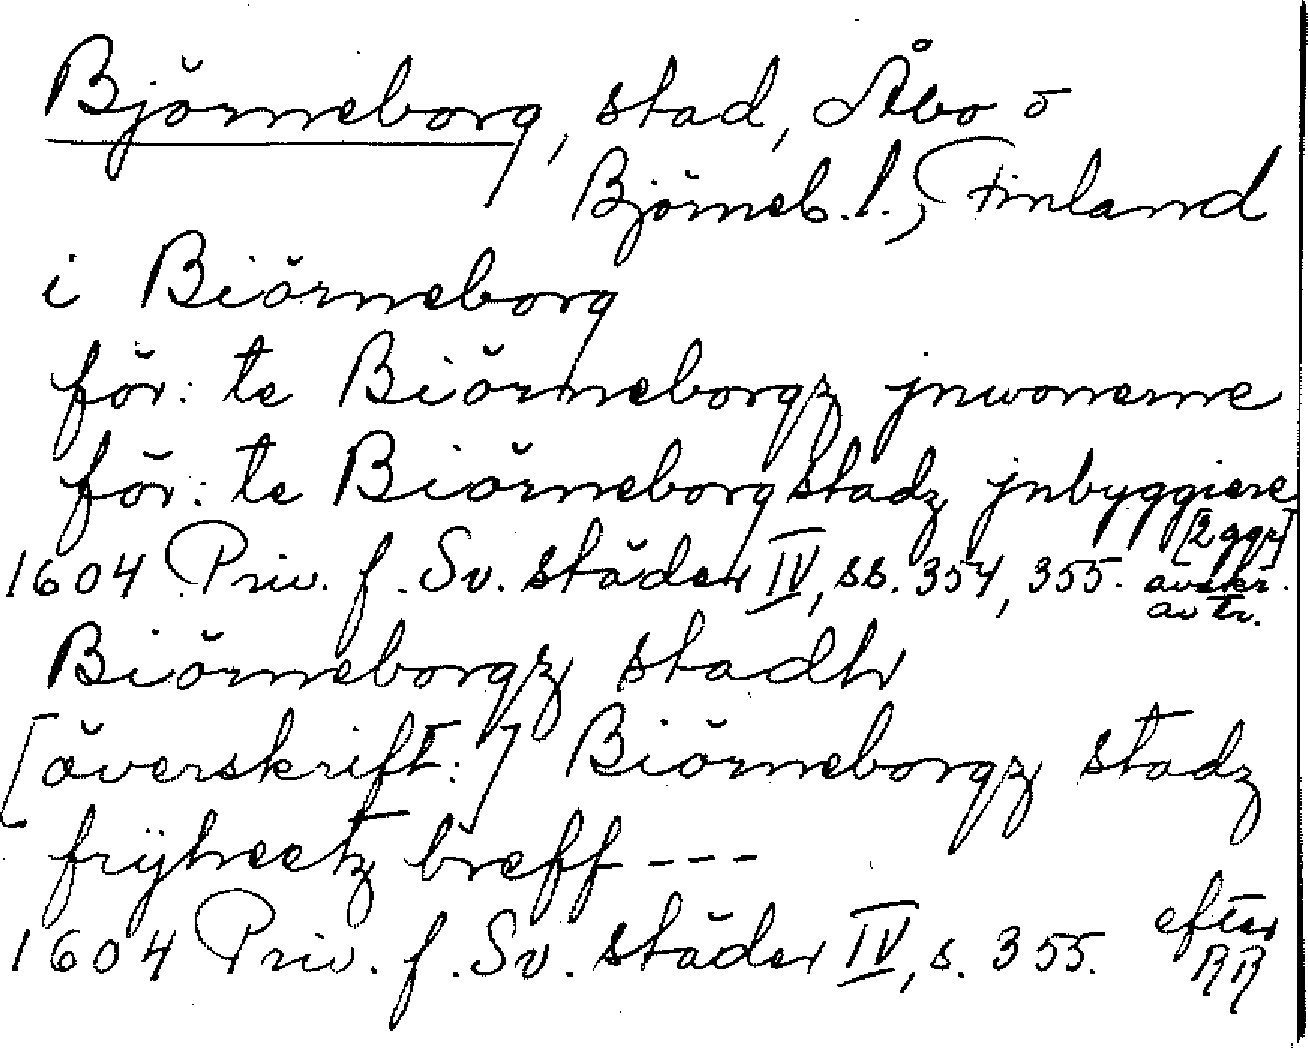 Björneborg, stad, Åbo o
Björneb. l., Finland
i Biörneborg
för: te Biörneborgz jnwonerne
för: te Biörneborg stadz jnbyggiere
[2 ggr]
1604 Priv. f. Sv. städer IV, ss. 354, 355. avskr.
av tr.
Biörneborgz stadh
[överskrift:] Biörneborgz stadz
frÿheetz breff ---
1604 Priv. f. Sv. städer IV, s. 355. efter
RR